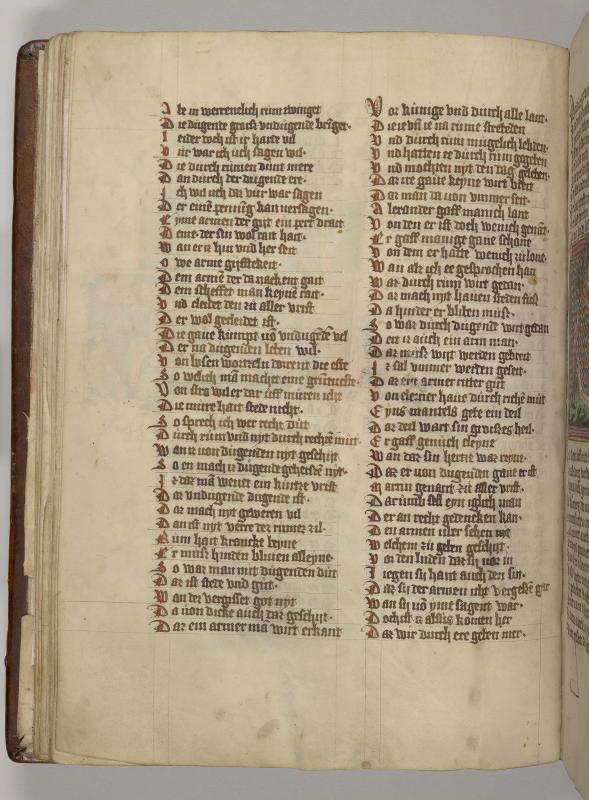 Abe in werrentlich rům zwinget
Die dügende groiß vndügende brīget.
Leider doch ist ir harte vil
Vür war ich üch sagen wil.
Die dürch rümen dünt mere
Dan dürch der dügende ere.
Ich wil üch daz vür war sagen
Der eime pennīg kan versagen.
Eyme armen der git ein pert drait
Dame der sin wol rait hait.
Wan er in hin vnd her seit
O we arme
Dem armē der da nackent gait
Dem scheffet man keynē rait.
Vnd cleidet den zü aller vrist
Der wol gecleidet ist.
Die gaue kümpt vō vndügēde vil
Der na dügenden leben wil.
Von bösen wortzeln dorrent die este
So welich mā machet eine grüntueste.
Von stro wil er dar üff müren icht
Die müre hait stede nicht.
So sprech ich wer recht düt
Dürch rüm vnd nyt dürch rechtē müt
Wan iz von dügenden nyt geschijt
So en mach iz dügende geheisen nyt.
Iz daz mā wenet ein kürtze vrist
Daz vndügende dügende ist.
Daz mach nyt geweren vil
Dan ist nyt verre dez rümez zil.
Rüm hait krancke beyne
Er müß hinden bliuen alleyne.
So waz man mit dügenden düt
Daz ist stede vnd güt.
Wan dez vergisset got nyt
Da von dicke auch daz geschijt.
Daz ein armer mā wirt erkant
Vor künige vnd dürch alle lant.
Die ie vil ie na rüme strebden
Vnd dürch rüm mügelich lebden.
Vnd hatten ee dürch rüm gegeben
Vnd mochten nyt den dag geleben.
Daz ire gaue keyne wirt breit
Daz man da von ymmer seit.
Alexander gaff manich lant
Von den er ist doch wenich genāt.
Er gaff manige gaue schone
Von dem er hatte wenich zü lone.
Wan alz ich ee gesprochen han
Waz dürch rüm wirt gedan.
Daz mach nyt hauen steden füß
Da hinder er bliben müß.
So waz dürch dügende wirt gedan
Den iz auch ein arm man.
Daz müß wijt werden gebreit
Iz sal ymmer werden geseit.
Daz ein armer ritter güt
Von cleyner haue dürch richē müt
Eyns mantels gebe ein deil
Daz deil wart sin groißes heil.
Er gaff genüch cleyne
Wan daz sin hertze waz reyne.
Daz er von dügenden gaue er ist
Martin genant zü aller vrist.
Darümb sall eyn iglich man
Der an recht gedencken kan.
Den armen uber sehen nyt
Welchem zü geben geschijt.
Vor den lüden daz sij vor in
Iegen sij hant auch den sin.
Daz sij der armen icht vergeße gar
Wan sij vō yme sagent war.
Doch ist iz alsüs komen her
Daz wir dürch ere geben mer.